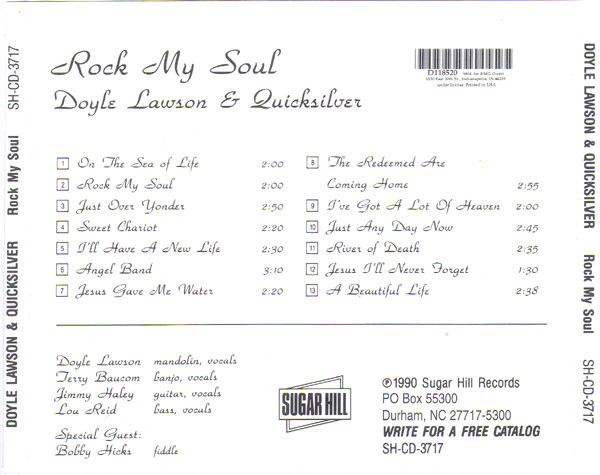 SH-CD-3717
Rock My Soul
DOYLE LAWSON & QUICKSILVER
Rock My Soul
Doyle Lawson & Quicksilver
D118520
under license. Printed in USA
1 On The Sea of Life 2:00
2 Rock My Soul 2:00
3 Just Over Yonder 2:50
4 Sweet Chariot 2:20
5 I'll Have A New Life 2:30
6 Angel Band 3:10
7 Jesus Gave Me Water 2:20
8 The Redeemed Are
Coming Home 2:55
9 I've Got A Lot Of Heaven 2:00
10 Just Any Day Now 2:45
11 River of Death 2:35
12 Jesus I'll Never Forget 1:30
13 A Beautiful Life 2:38
Doyle Lawson mandolin, vocals
Terry Baucom banjo, vocals
Jimmy Haley guitar, vocals
Lou Reid bass, vocals
Special Guest:
Bobby Hicks fiddle
SUGAR HILL
℗1990 Sugar Hill Records
PO Box 55300
Durham, NC 27717-5300
WRITE FOR A FREE CATALOG
SH-CD-3717
DOYLE LAWSON & QUICKSILVER
Rock My Soul
SH-CD-3717